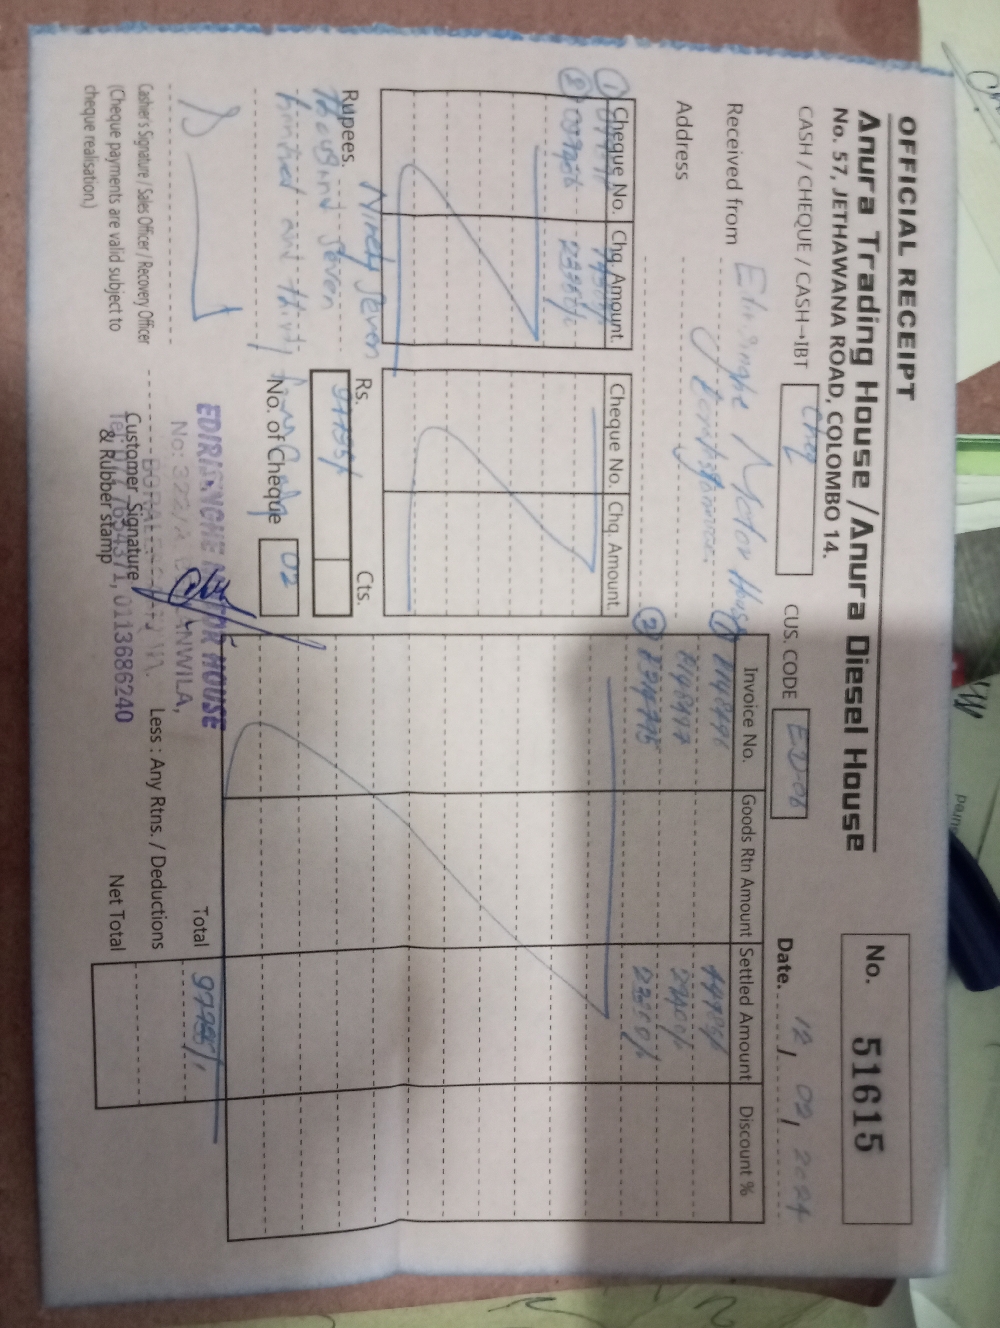 OFFICIAL RECEIPT
Anura Trading House / Anura Diesel House
No. 57, JETHAWANA ROAD, COLOMBO 14.
No. 51615
CASH / CHEQUE / CASH→IBT Chq
CUS. CODE ED-06
Date. 12 / 02 / 2024
Received from Motor House
Address
Cheque No. Chq. Amount. Cheque No. Chq. Amount.
Invoice No. Goods Rtn Amount Settled Amount Discount %
①
②
①
②
Rupees. Ninety Seven
Thousand Seven
hundred and thirty
Rs. Cts.
No. of Cheque 02
Total
Less : Any Rtns. / Deductions
Net Total
EDIRISINGHE MOTOR HOUSE
No: 322/
Cashier's Signature / Sales Officer / Recovery Officer
(Cheque payments are valid subject to
cheque realisation.)
Customer Signature
& Rubber stamp
0113686240